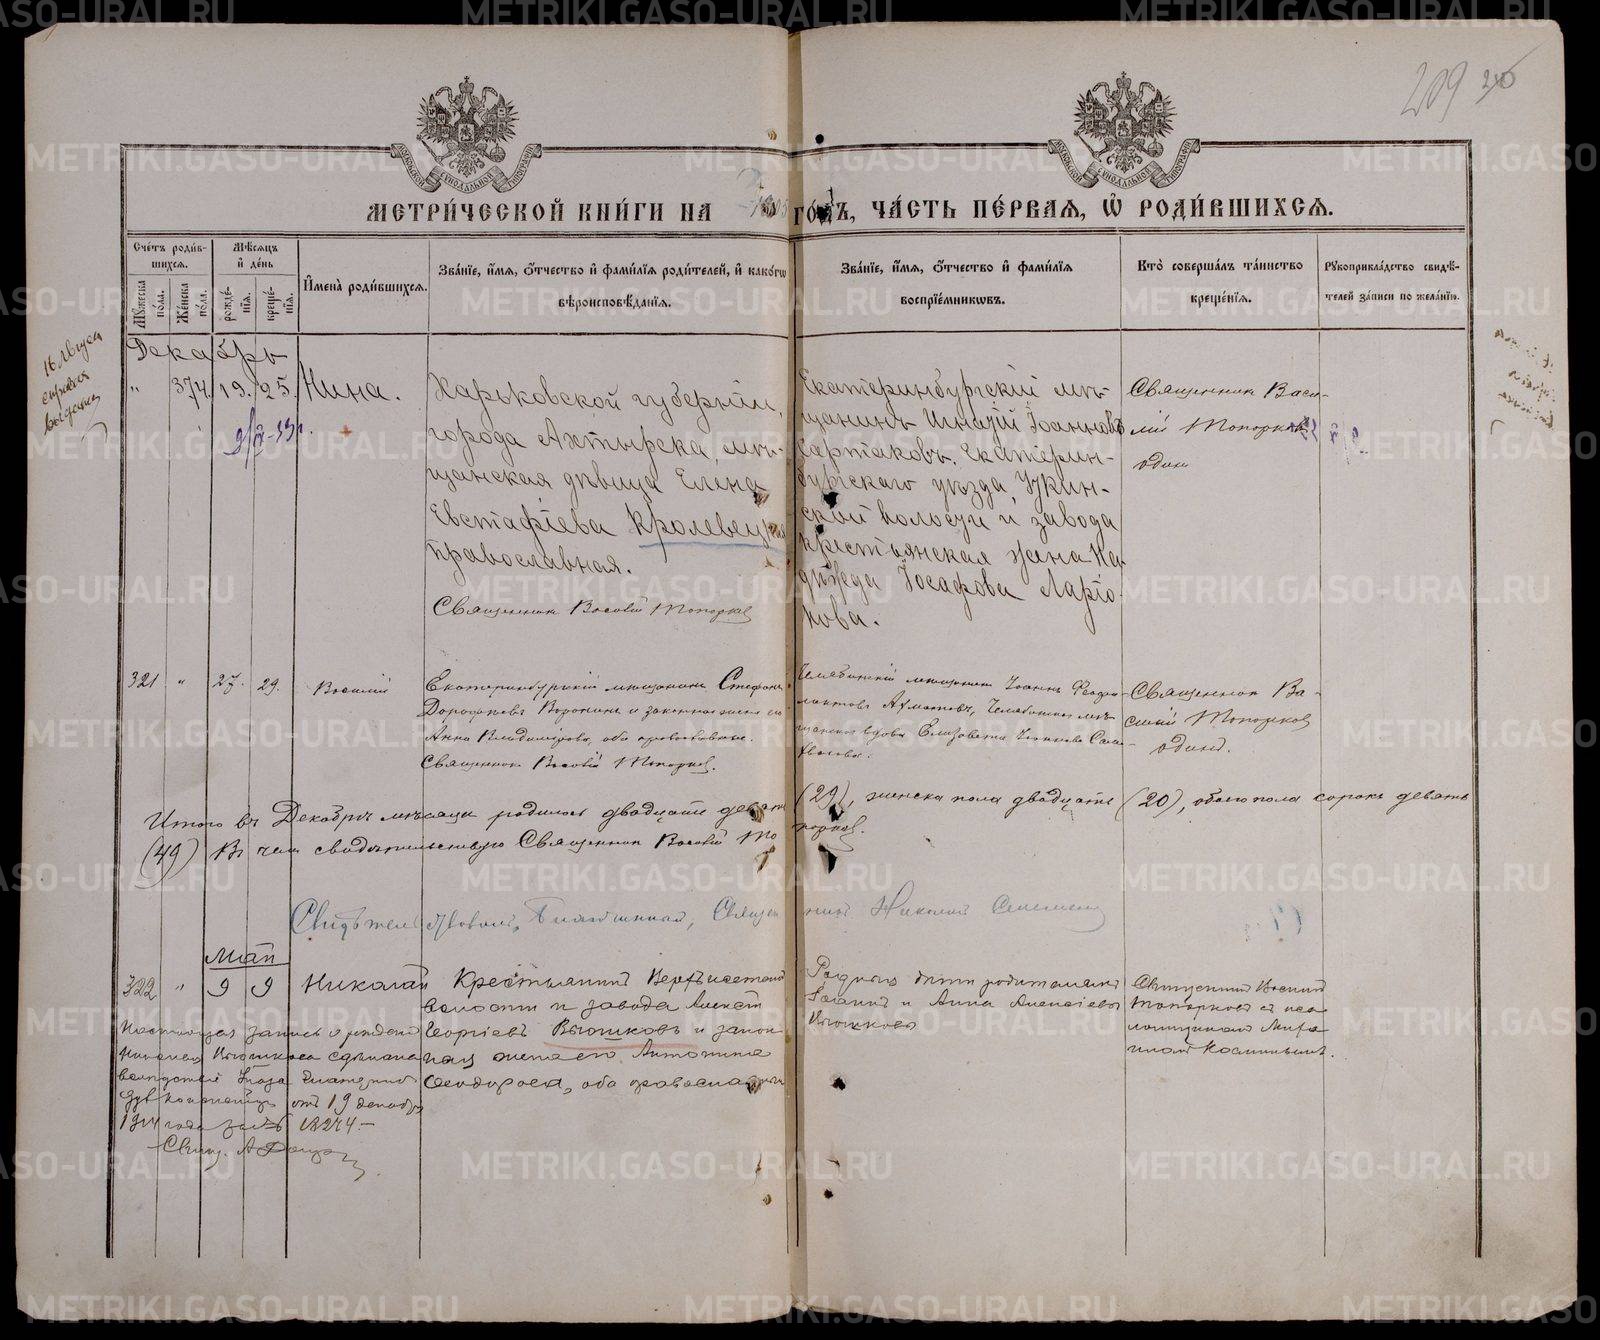 209
МЕТРИ́ЧЕСКОЙ КНИ́ГИ НА ГО́ДЪ, ЧА́СТЬ ПЕ́РВАЯ, Ѡ РОДИ́ВШИХСѦ.
Сче́тъ роди́в-
шихсѧ.
Мѣ́сѧцъ
и҆ де́нь
Мꙋ́жеска по́ла.
Же́нска по́ла.
рожде́-
нїѧ.
креще́-
нїѧ.
И҆мена̀ роди́вшихсѧ.
Зва́нїе, и҆́мѧ, ѻ҆́тчество и҆ фами́лїѧ роди́телей, и҆ како́гѡ
вѣроисповѣ́данїѧ.
Зва́нїе, и҆́мѧ, ѻ҆́тчество и҆ фами́лїѧ
воспрїе́мникѡвъ.
Кто̀ соверша́лъ та́инство
креще́нїѧ.
Рꙋкоприкла́дство свидѣ́-
телей за́писи по жела́нїю.
Декабрь
" 374. 19. 25. Нина.
Харьковской губерніи,
города Ахтырска, мѣ-
щанская дѣвица Елена
Евстафіева Кролевецкая
православная.
Священник Василій Топорков
Екатеринбургскій мѣ-
щанинъ Игнатій Іоанновъ
Сартаковъ. Екатерин-
бургскаго уѣзда, Уткин-
ской волости и завода
крестьянская жена На-
дежда Іосафова Ларіо-
нова.
Священник Васи-
лій Топорков
один
321 " 27. 29. Василій
Екатеринбургскій мещанин Стефан
Дорофеев Воронин и законная жена его
Анна Владимірова, оба православные.
Священник Василій Топорков.
Челябинскій мещанин Іоанн Феофи-
лактов Ахматов, Челябинская мѣ-
щанская вдова Елизавета Іоаннова
Священник Ва-
силій Топорков
один.
Итого въ Декабрѣ месяце родилось двадцать девять (29), женска пола двадцать (20), обоего пола сорокъ девять
(49) В чем свидетельствую Священник Василій Топорков.
Свидѣтельствовалъ, Благочинный, Священникъ Николай
Май
322 " 9 9 Николай
Крестьянинъ Верхъисетской
волости и завода Алексѣй
Георгіевъ Вьюшковъ и закон-
ная жена его Антонина
Ѳеодорова, оба православные
Родныя дѣти родителей
Іоаннъ и Анна Алексіевы
Вьюшковы
Священникъ Василій
Топорковъ съ пса-
ломщикомъ
Настоящая запись о рожденіи
Николая Вьюшкова сдѣлана
вслѣдствіе Указа Екатеринб.
Дух Консисторіи отъ 19 декабря
1914 года за № 18274.-
Свящ. А